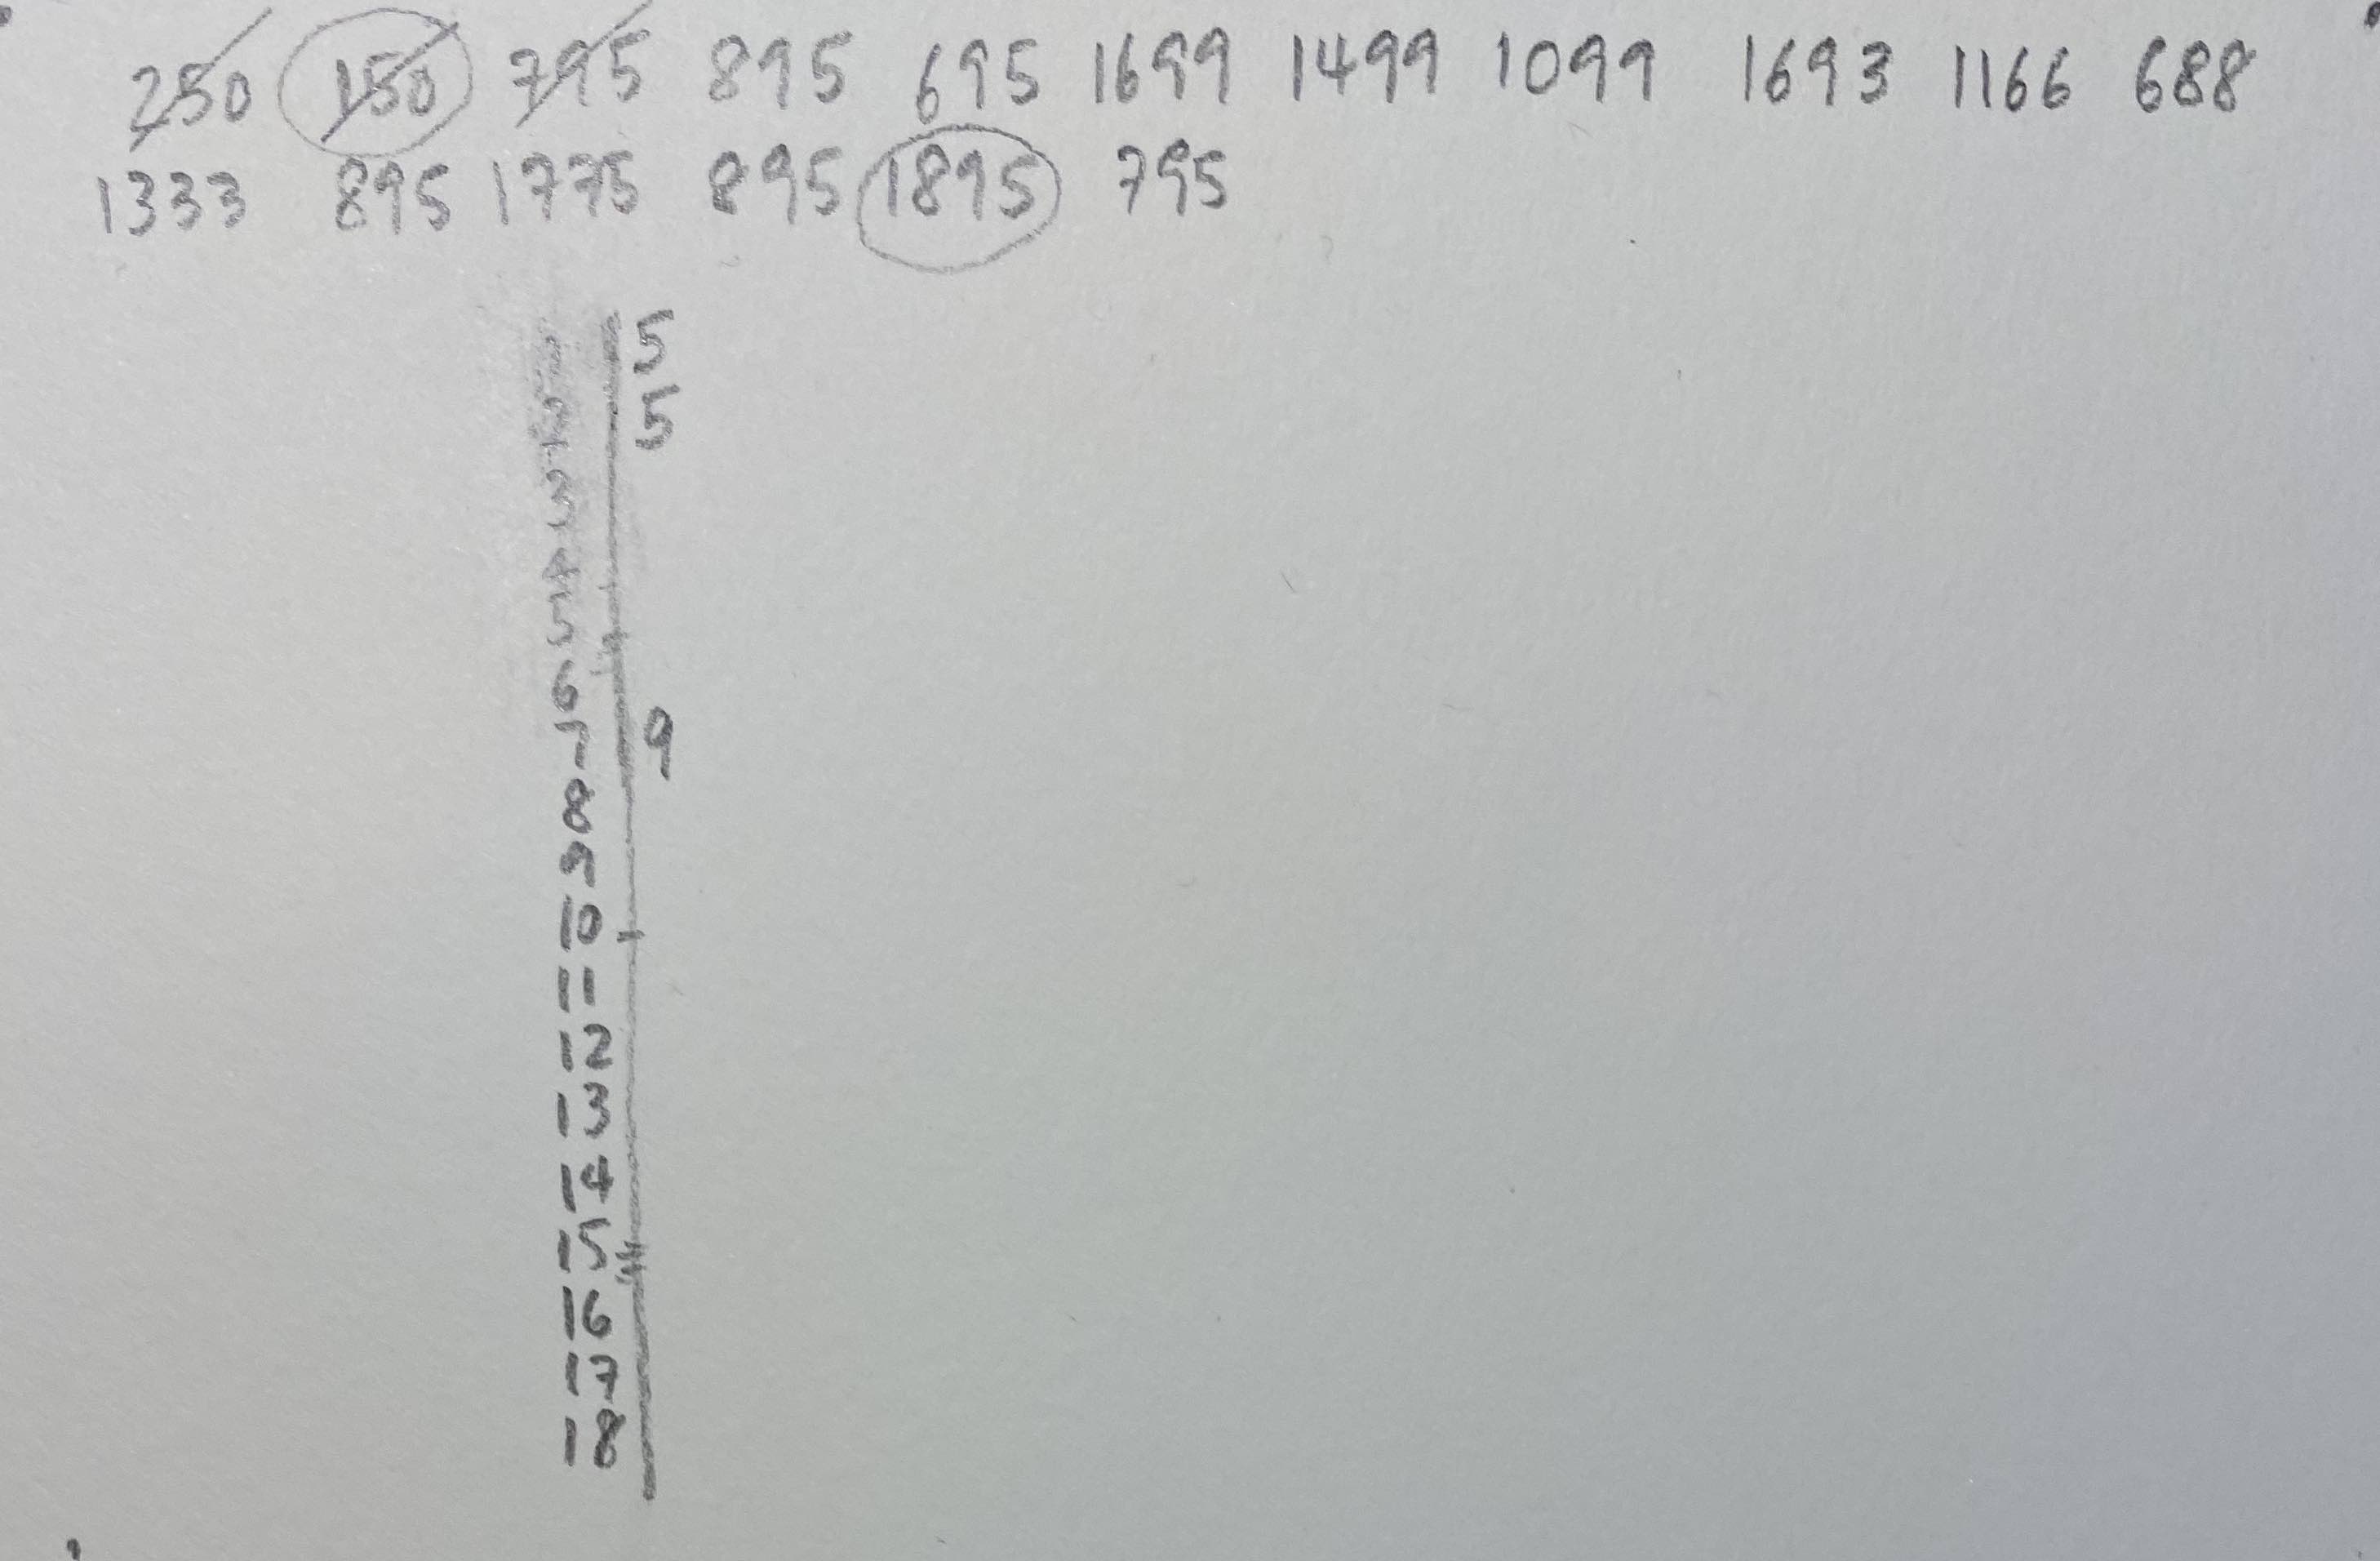 250 150 795 895 695 1699 1499 1099 1693 1166 688
1333 895 1775 895 1895 795
1 5
2 5
3
4
5
6
7 9
8
9
10
11
12
13
14
15
16
17
18